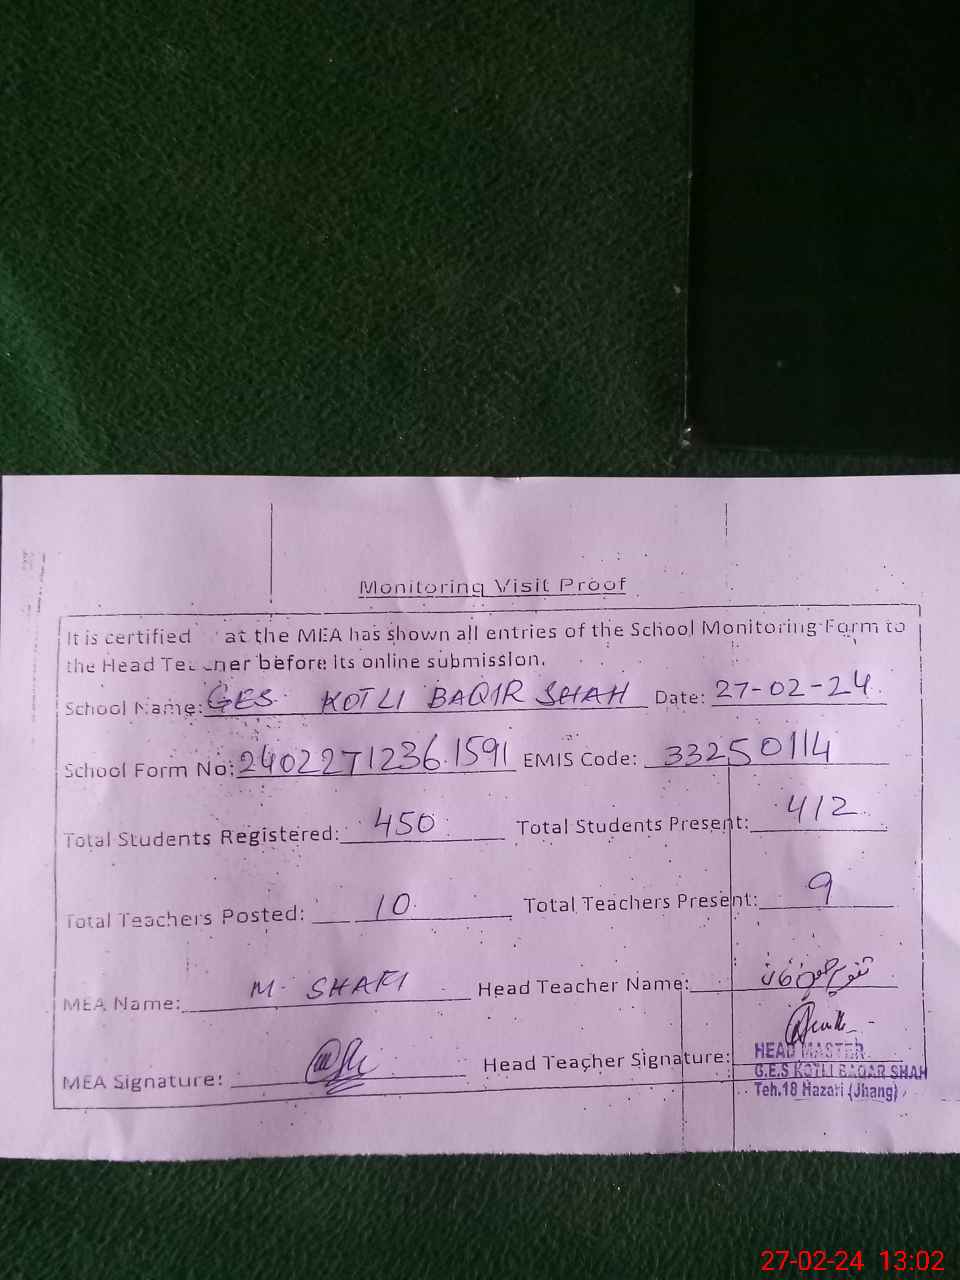 Monitoring Visit Proof
It is certified at the MEA has shown all entries of the School Monitoring Form to
the Head Teacher before its online submission.
School Name: GES. KOTLI BAQIR SHAH Date: 27-02-24.
School Form No: 2402271236.1591 EMIS Code: 33250114
Total Students Registered: 450 Total Students Present: 412
Total Teachers Posted: 10. Total Teachers Present: 9
MEA Name: M. SHAFI Head Teacher Name:
MEA Signature: Head Teacher Signature:
HEAD MASTER
G.E.S KOTLI BAQAR SHAH
Teh.18 Hazari (Jhang)
27-02-24 13:02